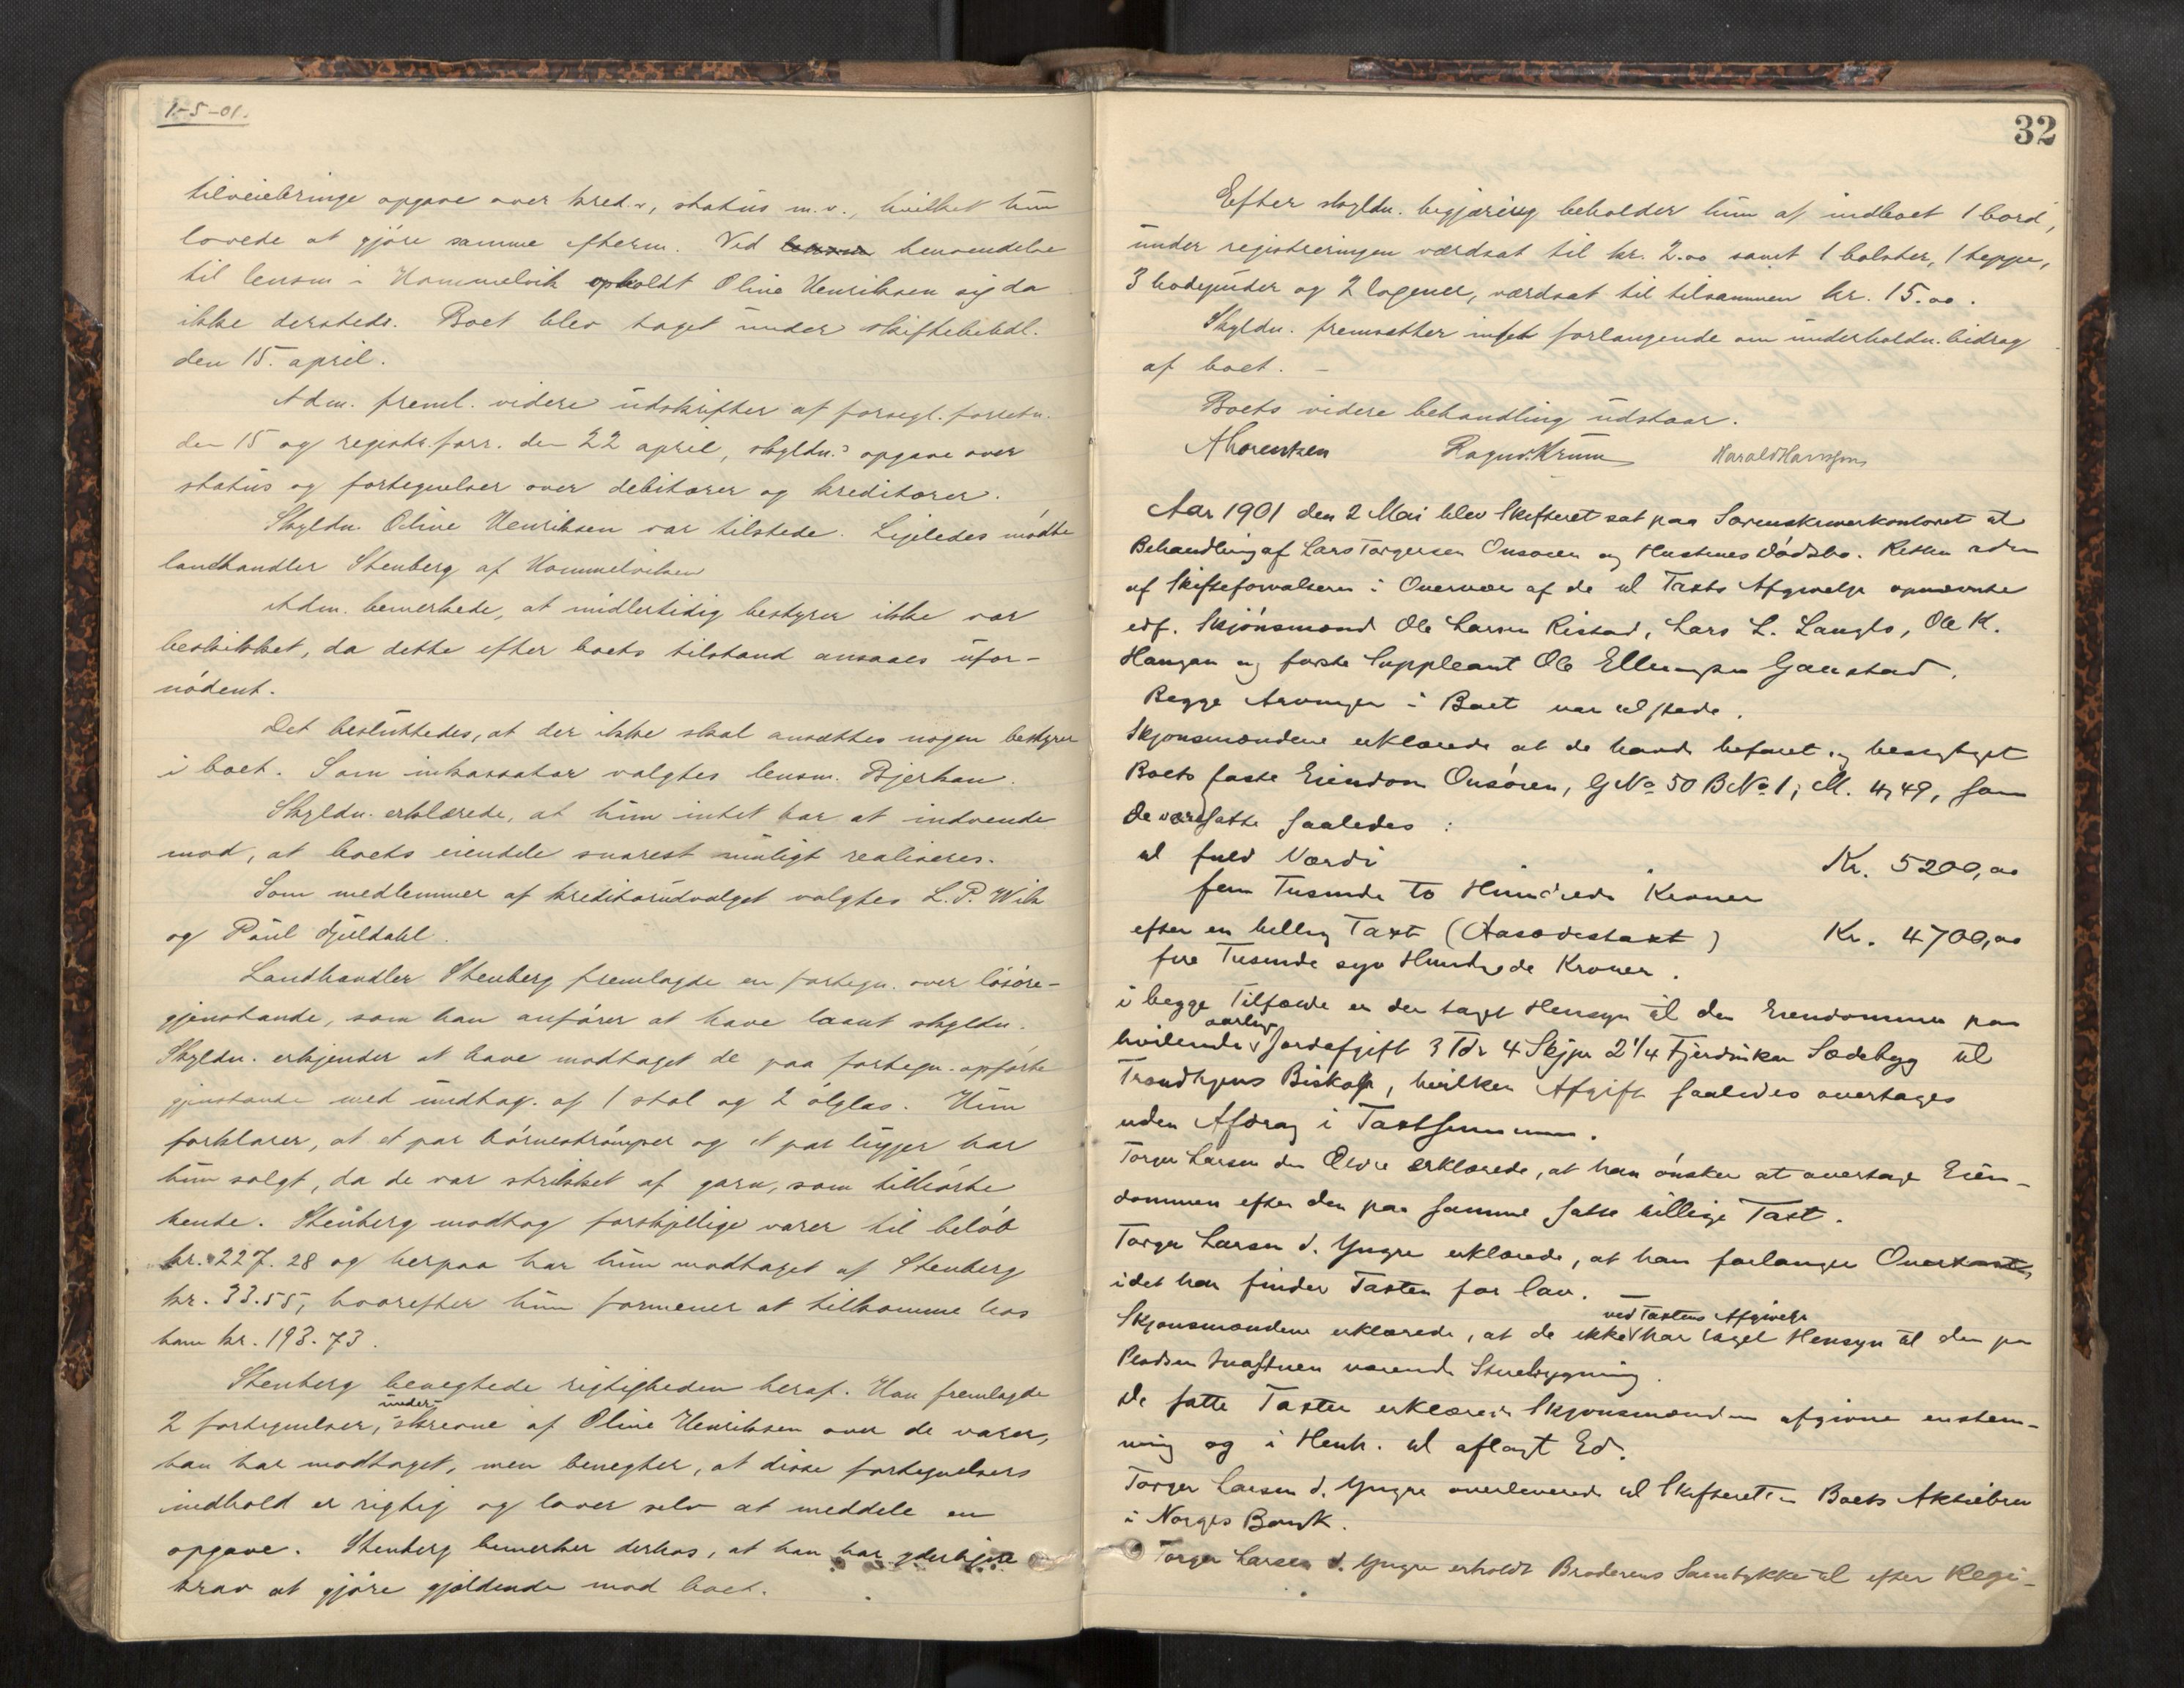 1-5-01.
tilveiebringe opgave over kred.r, status m.v., hvilket hun
lovede at gjöre samme efterm. Ved lensm henvendelse
til lensm i Hommelvik opholdt Oline Henriksen sig da
ikke dersteds. Boet blev taget under skiftebehdl.
den 15. april.
Adm. freml. videre udskrifter af forsegl. forretn.
den 15 og registr.forr. den 22 april, skyldn.s opgave over
status og fortegnelser over debitorer og kreditorer.
Skyldn. Oline Henriksen var tilstede. Ligeledes mödte
landhandler Stenberg af Hommelviken
Adm. bemerkede, at midlertidig bestyrer ikke var
beskikket, da dette efter boets tilstand ansaaes ufor-
nödent.
Det besluttedes, at der ikke skal ansættes nogen bestyrer
i boet. Som inkassator valgtes lensm. Bjerkan.
Skyldn. erklærede, at hun intet har at indvende
mod, at boets eiendele snarest muligt realiseres.
Som medlemmer af kreditorudvalget valgtes L.P. Wik
og Paul Fjeldahl.
Landhandler Stenberg fremlagde en fortegn. over lösöre-
gjenstande, som han anförer at have laant skyldn.
Skyldn. erkjender at have modtaget de paa fortegn. opförte
gjenstande med undtag. af 1 stol og 2 ölglas. Hun
forklarer, at et par börneströmper og et par lugger har
hun solgt, da de var strikket af garn, som tilhörte
hende. Stenberg modtog forskjellige varer til belöb
kr. 227.28 og herpaa har hun modtaget af Stenberg
kr. 33.55, hvorefter hun formener at tilkomme hos
ham kr. 193.73.
Stenberg benegtede rigtigheden heraf. Han fremlagde
2 fortegnelser, under-skrevne af Oline Henriksen over de varer,
han har modtaget, men benegter, at disse fortegnelsers
indhold er rigtig og lover selv at meddele en
opgave. Stenberg bemerker derhos, at han har yderligere
krav at gjöre gjældende mod boet.
32
Efter skyldn. begjæring beholder hun af indboet 1 bord,
under registreringen værdsat til kr. 2.00 samt 1 bolster, 1 teppe,
3 hodeputer og 2 lagener, værdsat til tilsammen kr. 15.00.
Skyldn. fremsætter intet forlangende om underholdn.bidrag
af boet. -
Boets videre behandling udstaar.
A Lorentzen Ragnv. Krum Harald Hanssen
Aar 1901 den 2 Mai blev Skifteret sat paa Sorenskriverkontoret til
Behandling af Lars Torgersen Onsöien og Hustrues Dödsbo. Retten adm
af Skifteforvalteren i Overvær af de til Taxts Afgivelse opnævnte
edf. Skjönsmænd Ole Larsen Ristad, Lars L. Langlo, Ole K.
Haugan og förste Suppleant Ole Ellingsen Gaustad.
Begge Arvinger i Boet var tilstede.
Skjönsmændene erklærede at de havde befaret og besigtiget
Boets faste Eiendom Onsöien, G No 50 B No 1, M. 4,49, som
de værdsatte saaledes:
til fuld Værdi Kr. 5200,00
fem Tusinde to Hundrede Kroner
efter en billig Taxt (Aasædestaxt) Kr. 4700,00
fire Tusinde syv Hundrede Kroner.
i begge Tilfælde er der taget Hensyn til den Eiendommen paa
hvilende aarlige Jordafgift 3 Tdr 4 Skjpr 2 1/4 Fjerdinkar Sædebyg til
Trondhjems Biskop, hvilken Afgift saaledes overtages
uden Afdrag i Taxtsummen.
Torger Larsen den Ældre erklærede, at han önsker at overtage Eien-
dommen efter den paa samme satte billige Taxt.
Torger Larsen d. Yngre erklærede, at han forlanger Overtaxt,
idet han finder Taxten for lav.
Skjönsmændene erklærede, at de ikke ved Taxtens Afgivelse har taget Hensyn til den paa
Pladsen værende Stuebygning.
De satte Taxter erklærede Skjönsmændene afgivne enstem-
mig og i Henh. til aflagt Ed.
Torger Larsen d. Yngre overleverede til Skifteretten Boets Aktiebrev
i Norges Bank.
Torger Larsen d. Yngre erholdt Broderens Samtykke til efter Regi-